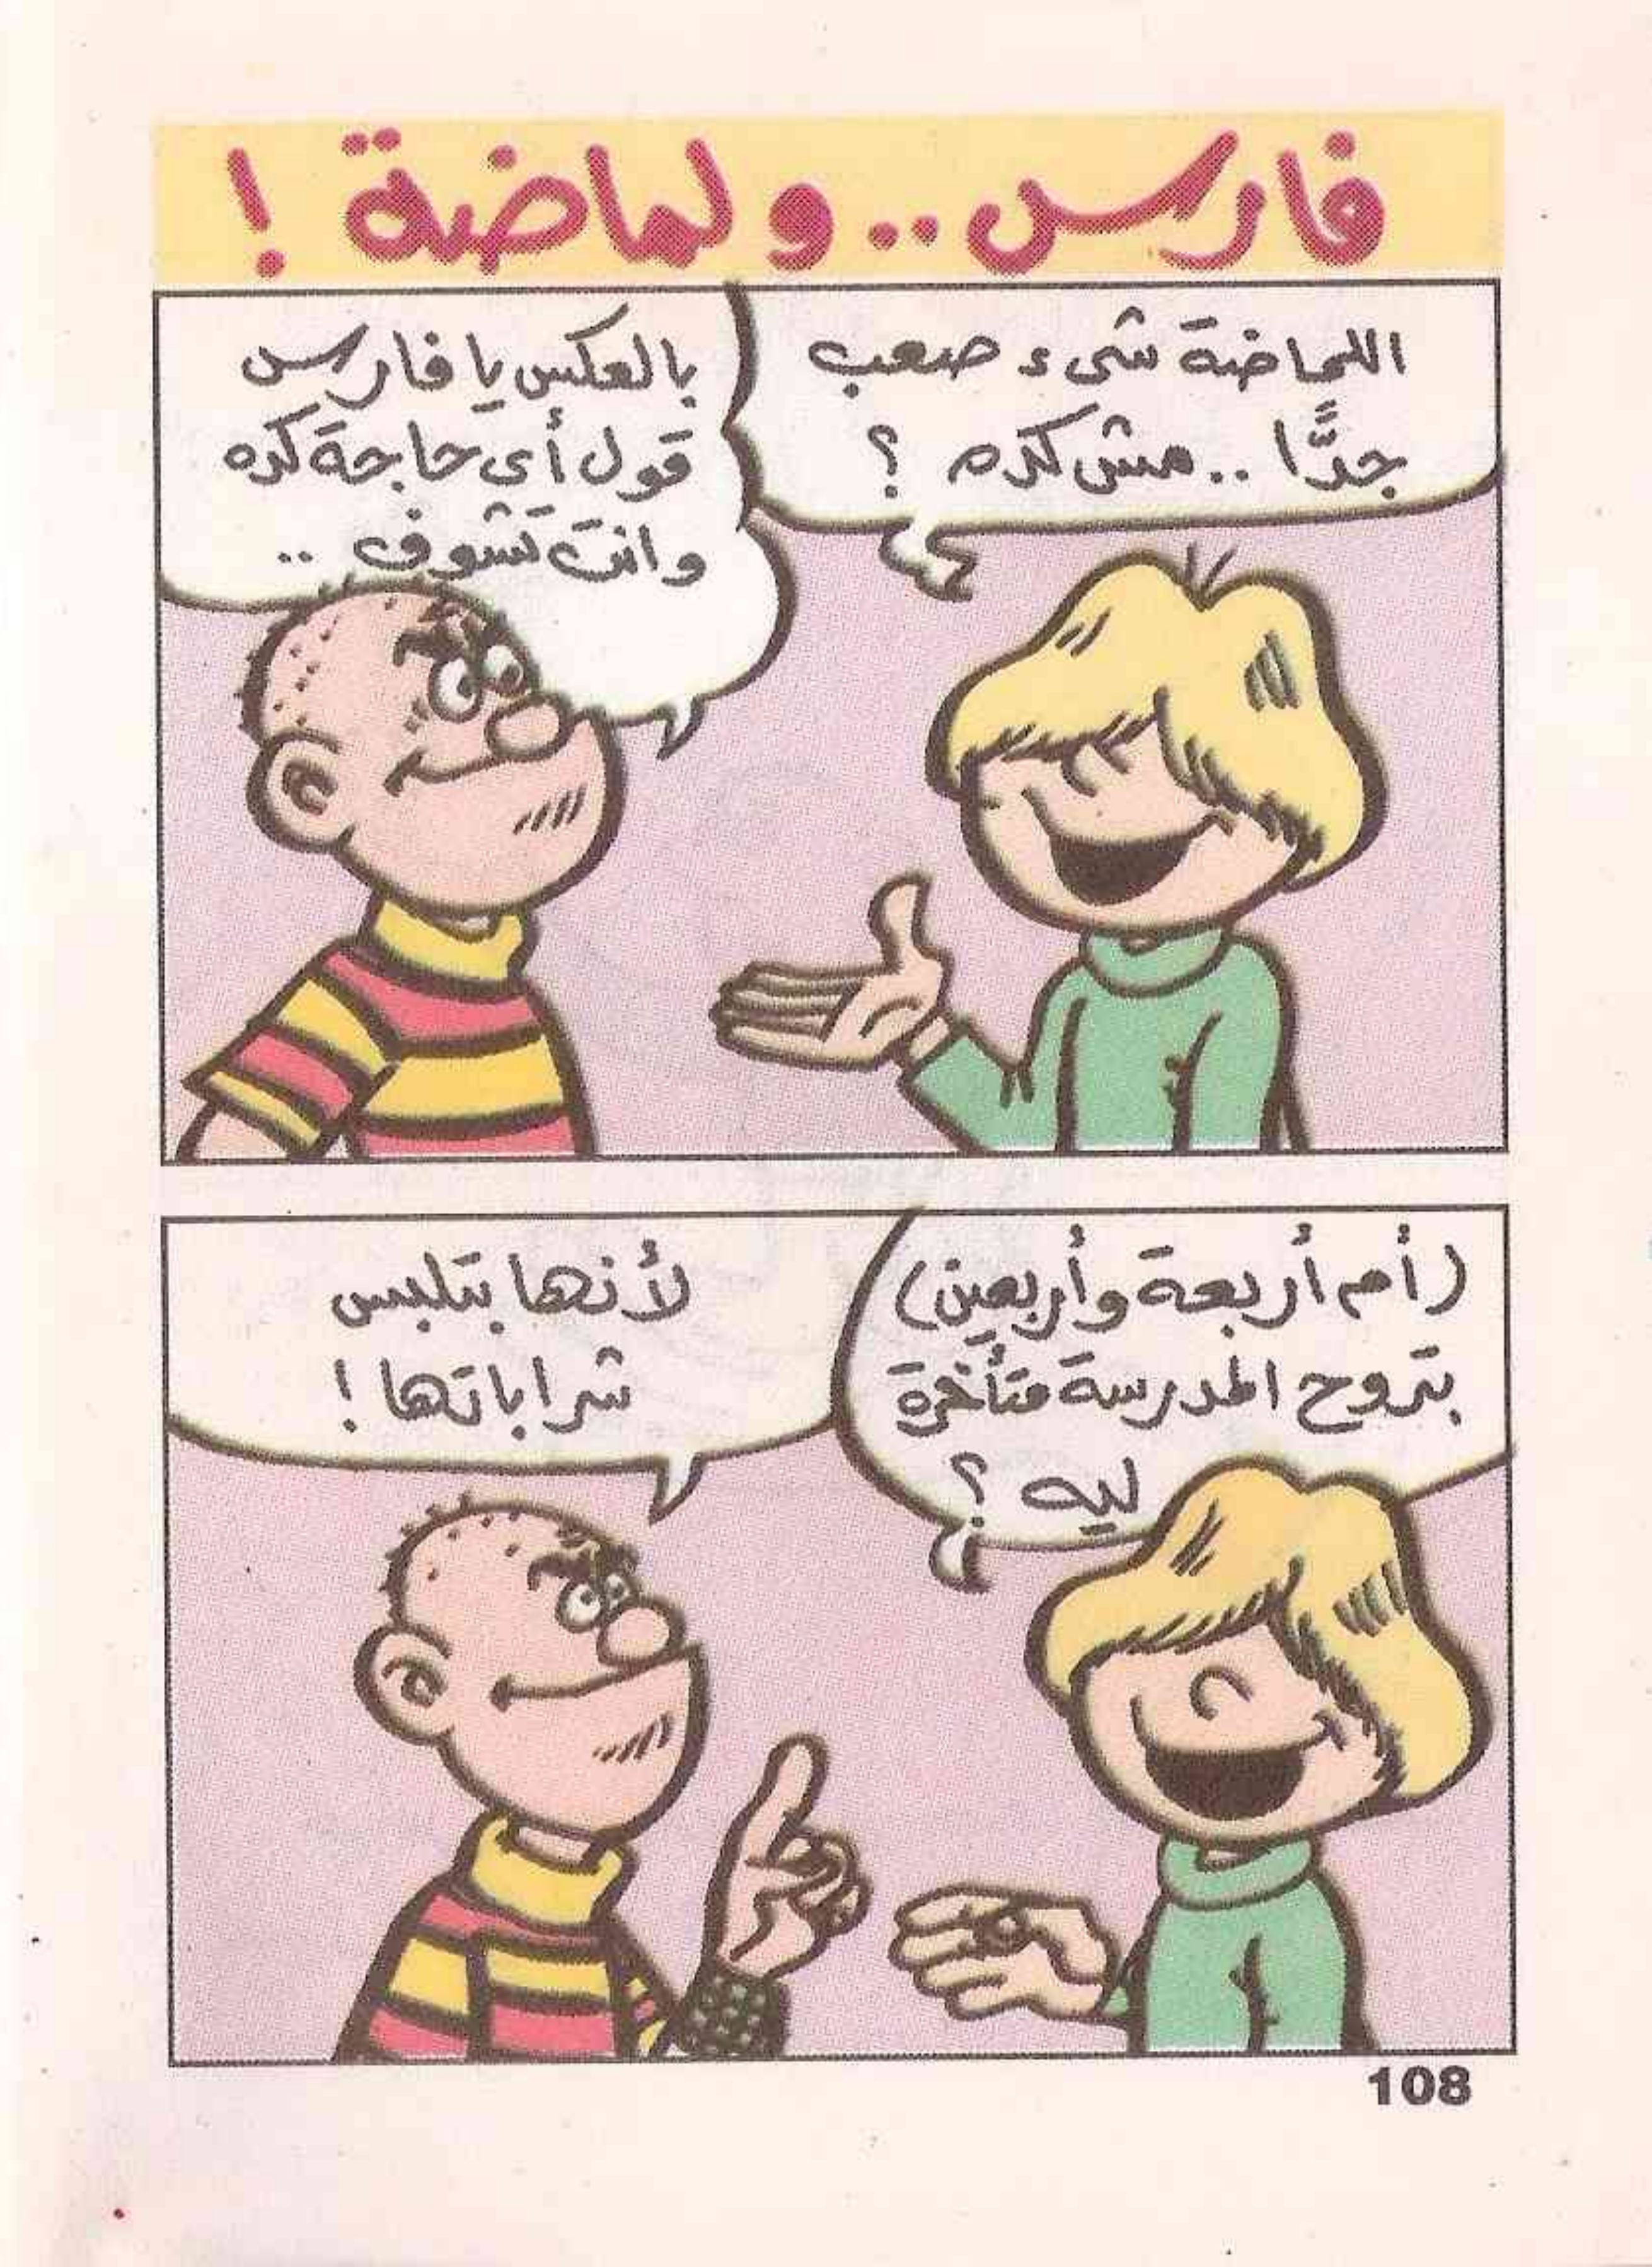 فارس .. ولماضة !
اللماضة شىء صعب
جدًّا .. مش كده ؟
بالعكس يا فارس
قول أى حاجة كده
وانتَ تشوف ..
(أم أربعة وأربعين)
بتروح المدرسة متأخرة
ليه ؟
لأنها بتلبس
شراباتها !
108